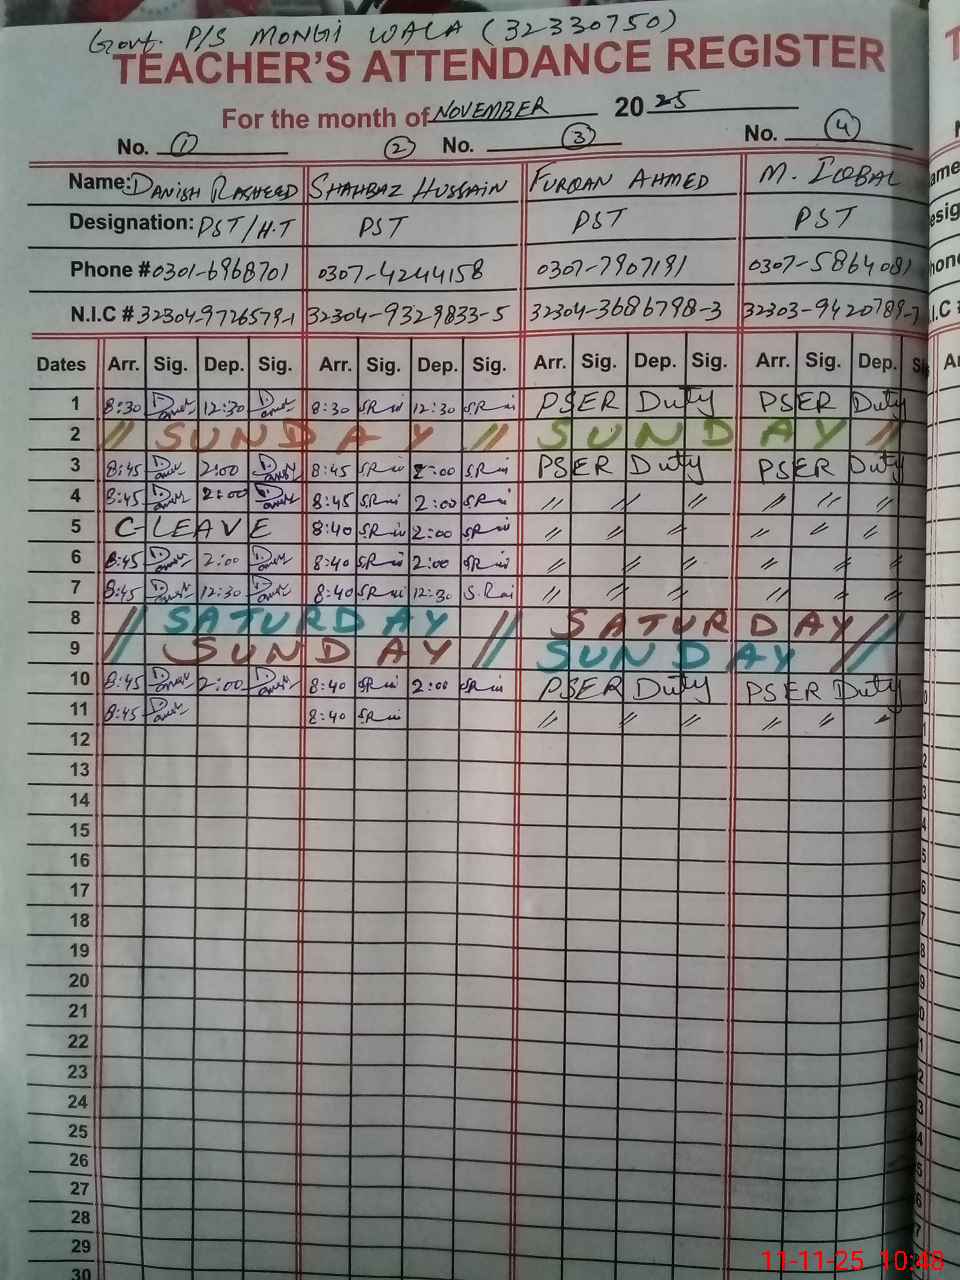 Govt. P/S MONGI WALA (32330750)
TEACHER'S ATTENDANCE REGISTER
For the month of NOVEMBER 2025
No. ① ② No. ③ No. ④
Name: DANISH RASHEED SHAHBAZ HUSSAIN FURQAN AHMED M. IQBAL
Designation: PST/H.T PST PST PST
Phone # 0301-6968701 0307-4244158 0307-7907191 0307-5864081
N.I.C # 32304-9726579-1 32304-9329833-5 32304-3686798-3 32303-9420789-7
Dates Arr. Sig. Dep. Sig. Arr. Sig. Dep. Sig. Arr. Sig. Dep. Sig. Arr. Sig. Dep.
1 8:30 12:30 8:30 12:30 PSER Duty PSER Duty
2 // SUNDAY // SUNDAY //
3 8:45 2:00 8:45 2:00 PSER Duty PSER Duty
4 8:45 2:00 8:45 2:00 // // // // // //
5 C-LEAVE 8:40 2:00 // // // // // //
6 8:45 2:00 8:40 2:00 // // // // // //
7 8:45 12:30 8:40 12:30 // // // // // //
8 // SATURDAY // SATURDAY //
9 // SUNDAY // SUNDAY //
10 8:45 2:00 8:40 2:00 PSER Duty PSER Duty
11 8:45 8:40 // // // // // //
12
13
14
15
16
17
18
19
20
21
22
23
24
25
26
27
28
29
30
11-11-25 10:48